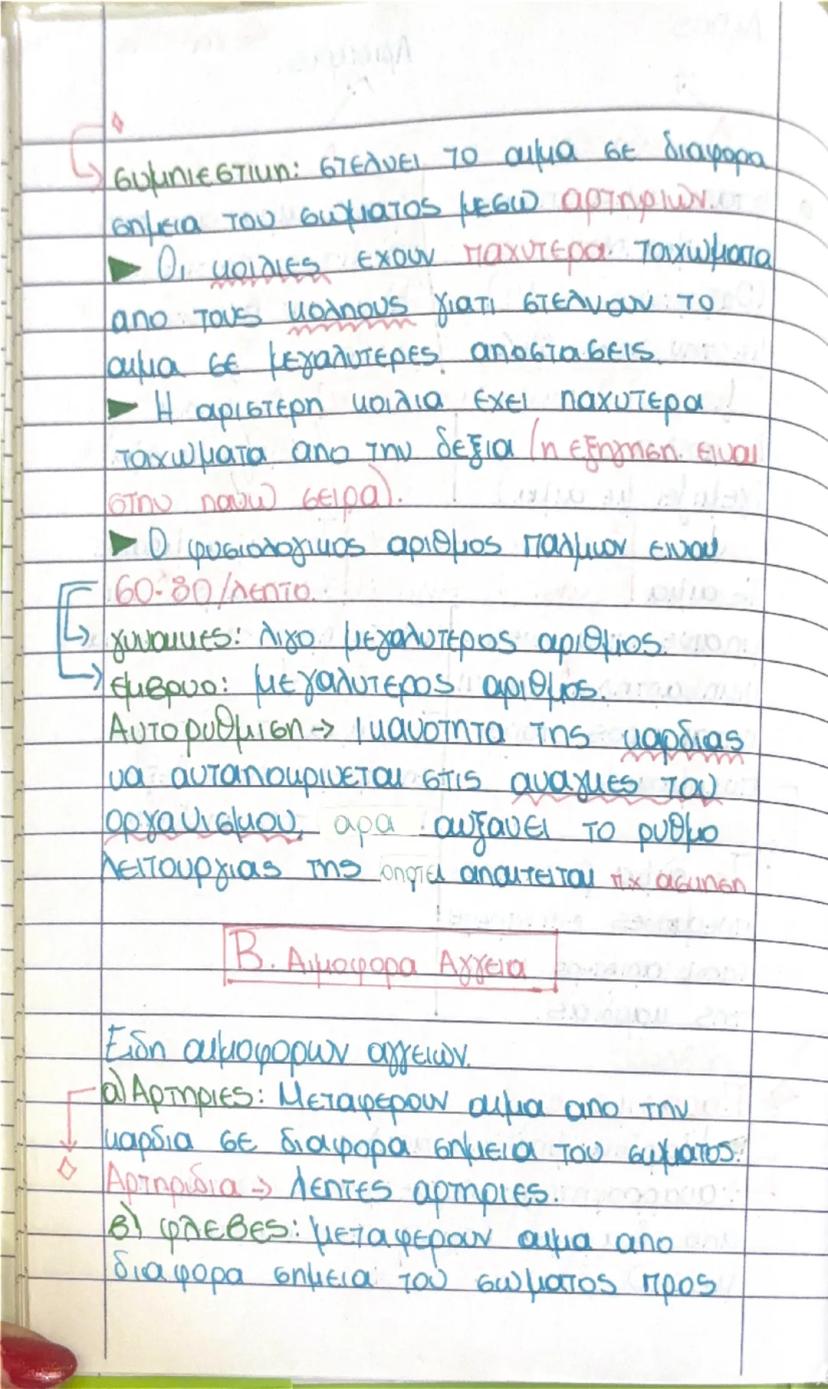 συμπιεστικη: στελνει το αιμα σε διαφορα
σημεια του σωματος μεσω αρτηριων.
► Οι κοιλιες εχουν παχυτερα τοιχωματα
απο τους κολπους γιατι στελνουν το
αιμα σε μεγαλυτερες αποστασεις.
► Η αριστερη κοιλια εχει παχυτερα
τοιχωματα απο την δεξια (η εξηγηση ειναι
στην πανω σειρα).
► Ο φυσιολογικος αριθμος παλμων ειναι
60-80/λεπτο.
γυναικες: λιγο μεγαλυτερος αριθμος.
εμβρυο: μεγαλυτερος αριθμος.
Αυτορυθμιση → ικανοτητα της καρδιας
να ανταποκρινεται στις αναγκες του
οργανισμου, αρα αυξανει το ρυθμο
λειτουργιας της οποτε απαιτειται πχ ασκηση
Β. Αιμοφορα Αγγεια
Ειδη αιμοφορων αγγειων.
α) Αρτηριες: Μεταφερουν αιμα απο την
καρδια σε διαφορα σημεια του σωματος.
Αρτηριδια → λεπτες αρτηριες.
β) φλεβες: μεταφερουν αιμα απο
διαφορα σημεια του σωματος προς